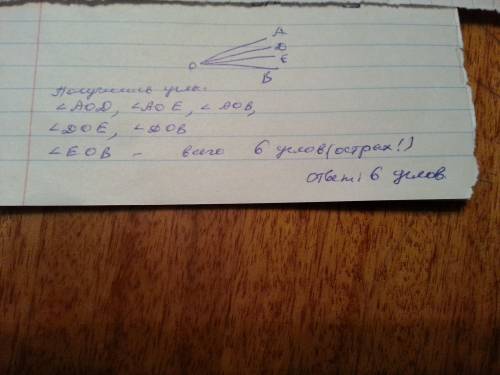 A
D
E
O
B
Получились углы:
∠AOD, ∠AOE, ∠AOB,
∠DOE, ∠DOB
∠EOB – всего 6 углов (острых!)
Ответ: 6 углов.